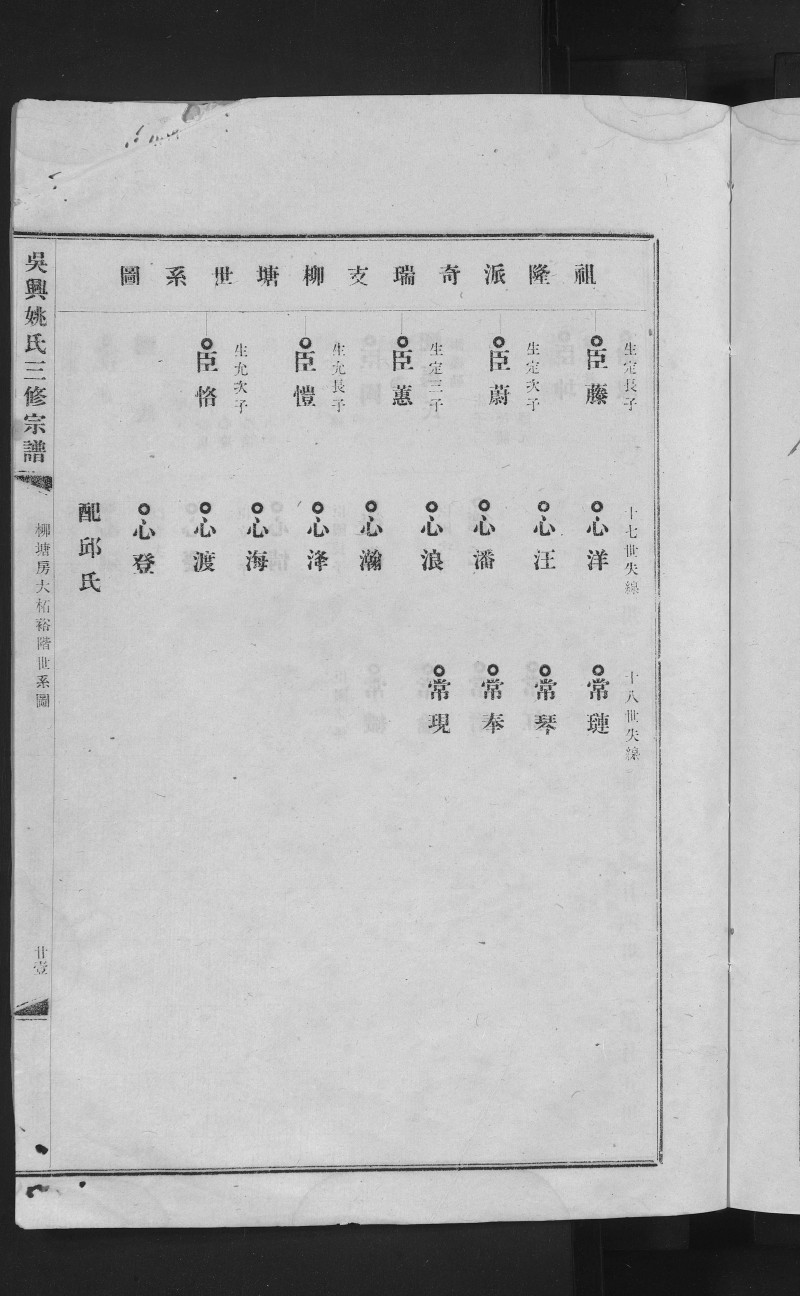 祖隆派奇瑞支柳塘世系圖
生定長子
臣藤
生定次子
臣蔚
生定三子
臣蕙
生允長子
臣愷
生允次子
臣恪
十七世失線
心洋
心汪
心潘
心浪
心瀚
心泽
心海
心渡
心登
配邱氏
十八世失線
常璉
常琴
常奉
常現
吳興姚氏三修宗譜
柳塘房大柘谿階世系圖
廿壹